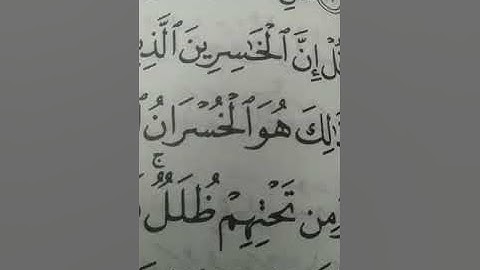 قُلْ إِنَّ ٱلْخَٰسِرِينَ ٱلَّذِ
ذَٰلِكَ هُوَ ٱلْخُسْرَانُ
وَمِن تَحْتِهِمْ ظُلَلٌۚ